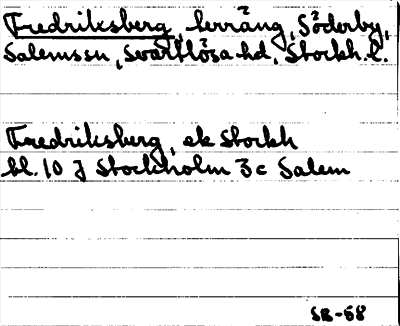 Fredriksberg, terräng, Söderby,
Salems sn, Svartlösa hd, Stockh. l.
Fredriksberg, ek Stockh
bl. 10 J Stockholm 3c Salem
SB-68